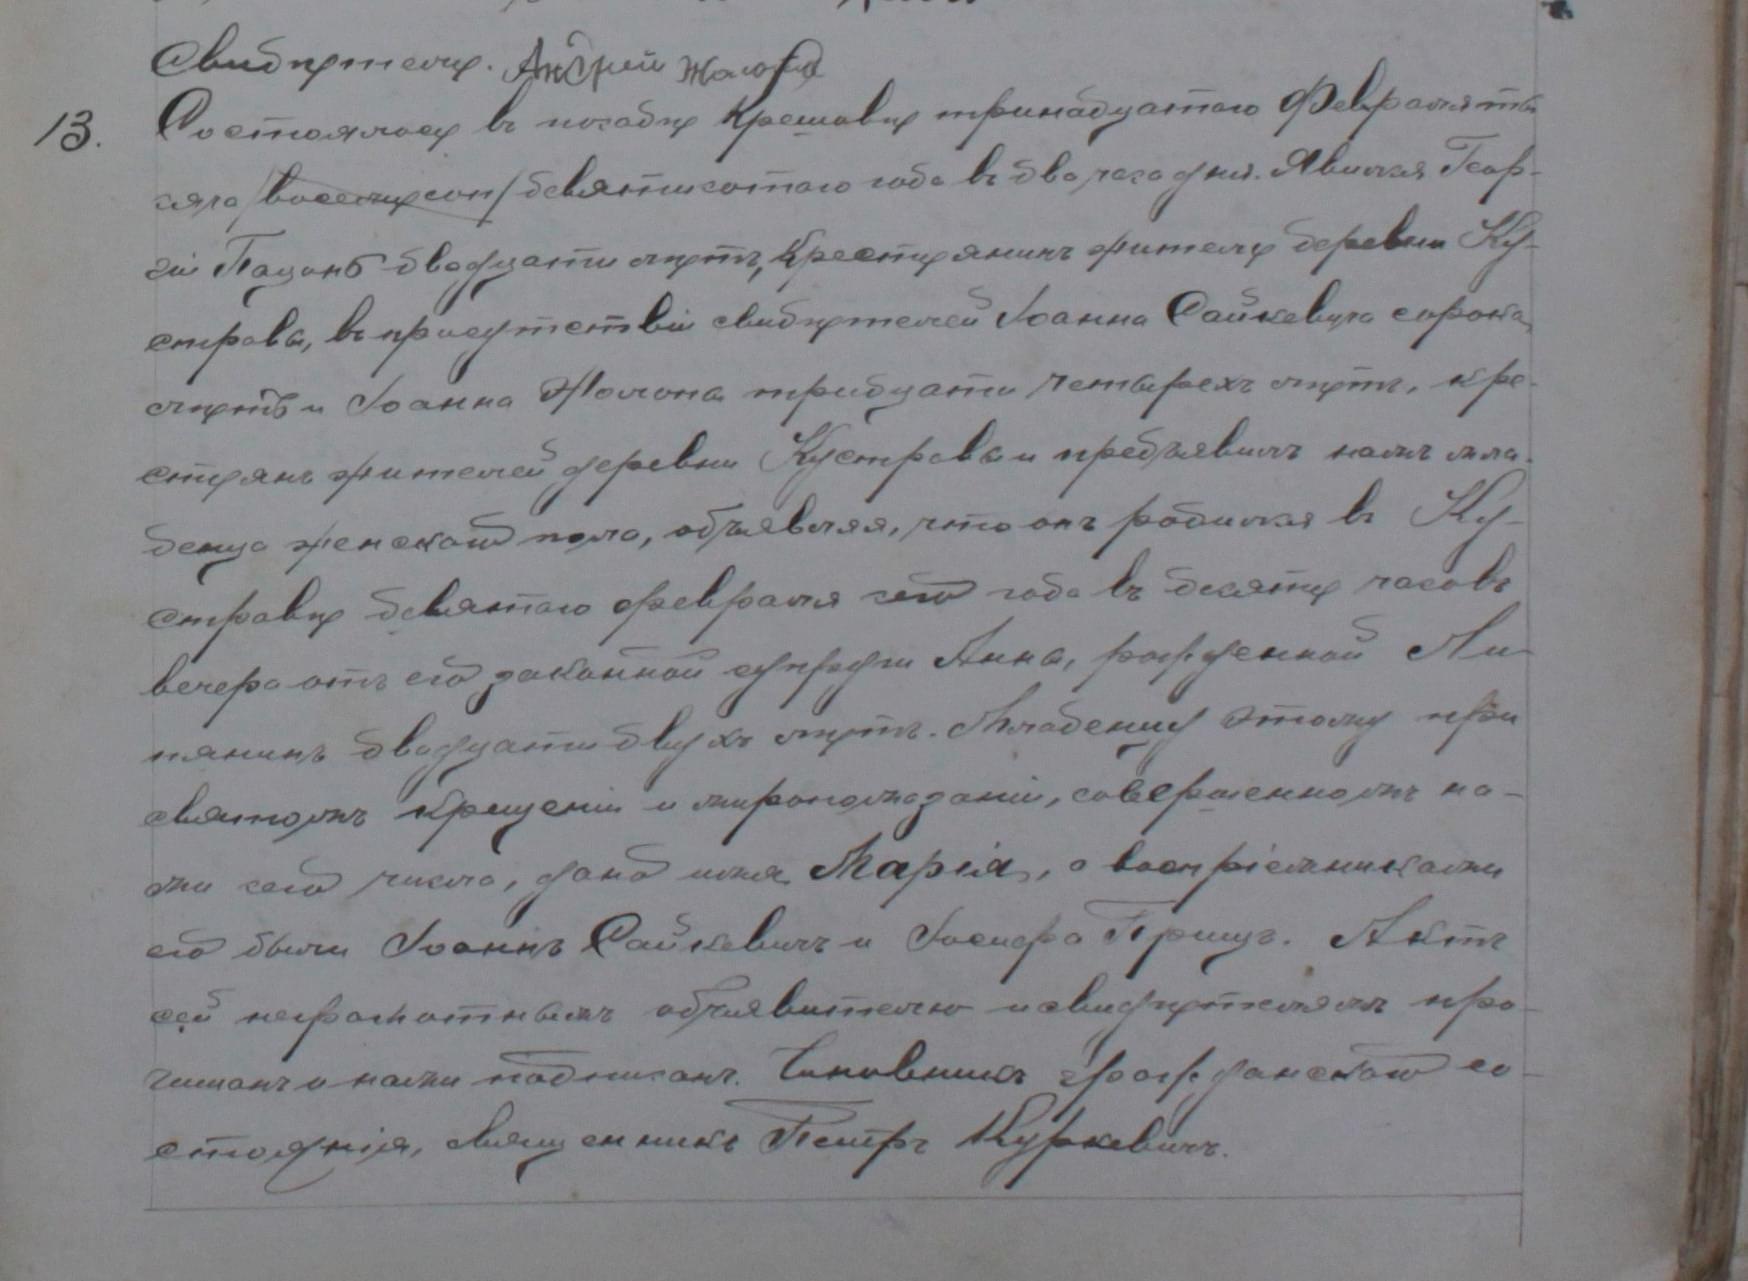 Свидѣтель. Андрей
13. Состоялось въ посадѣ Крешовѣ тринадцатаго Февраля ты-
сяча /восемьсот/ девятисотаго года въ два часа дня. Явился Геор-
гій Пацанъ двадцати лѣтъ, крестьянинъ житель деревни Ку-
стравы, въ присутствіи свидѣтелей Іоанна Сайкевича сорока
лѣтъ и Іоанна Жолона тридцати четырехъ лѣтъ, кре-
стьянъ жителей деревни Кустравы и предъявилъ намъ мла-
денца женскаго пола, объявляя, что онъ родился въ Ку-
стравѣ девятаго февраля сего года въ десять часовъ
вечера отъ его законной супруги Анны, рожденной Ли-
пянинъ двадцати двухъ лѣтъ. Младенцу этому при
святомъ крещеніи и миропомазаніи, совершенномъ на-
ми сего числа, дано имя Марія, а воспріемниками
его были Іоаннъ Сайкевичъ и Іосифа Грицъ. Актъ
сей неграмотнымъ объявителю и свидѣтелямъ про-
читанъ и нами подписанъ. Чиновникъ гражданскаго со-
стоянія, священникъ Петръ Куркевичъ.